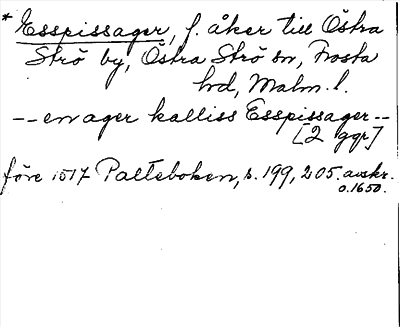 * Esspissager, f. åker till Östra
Strö by, Östra Strö sn, Frosta
hd, Malm. l.
-- en ager kalliss Esspissager --
[2 ggr]
före 1517 Palteboken, s. 199, 205. avskr.
o. 1650.